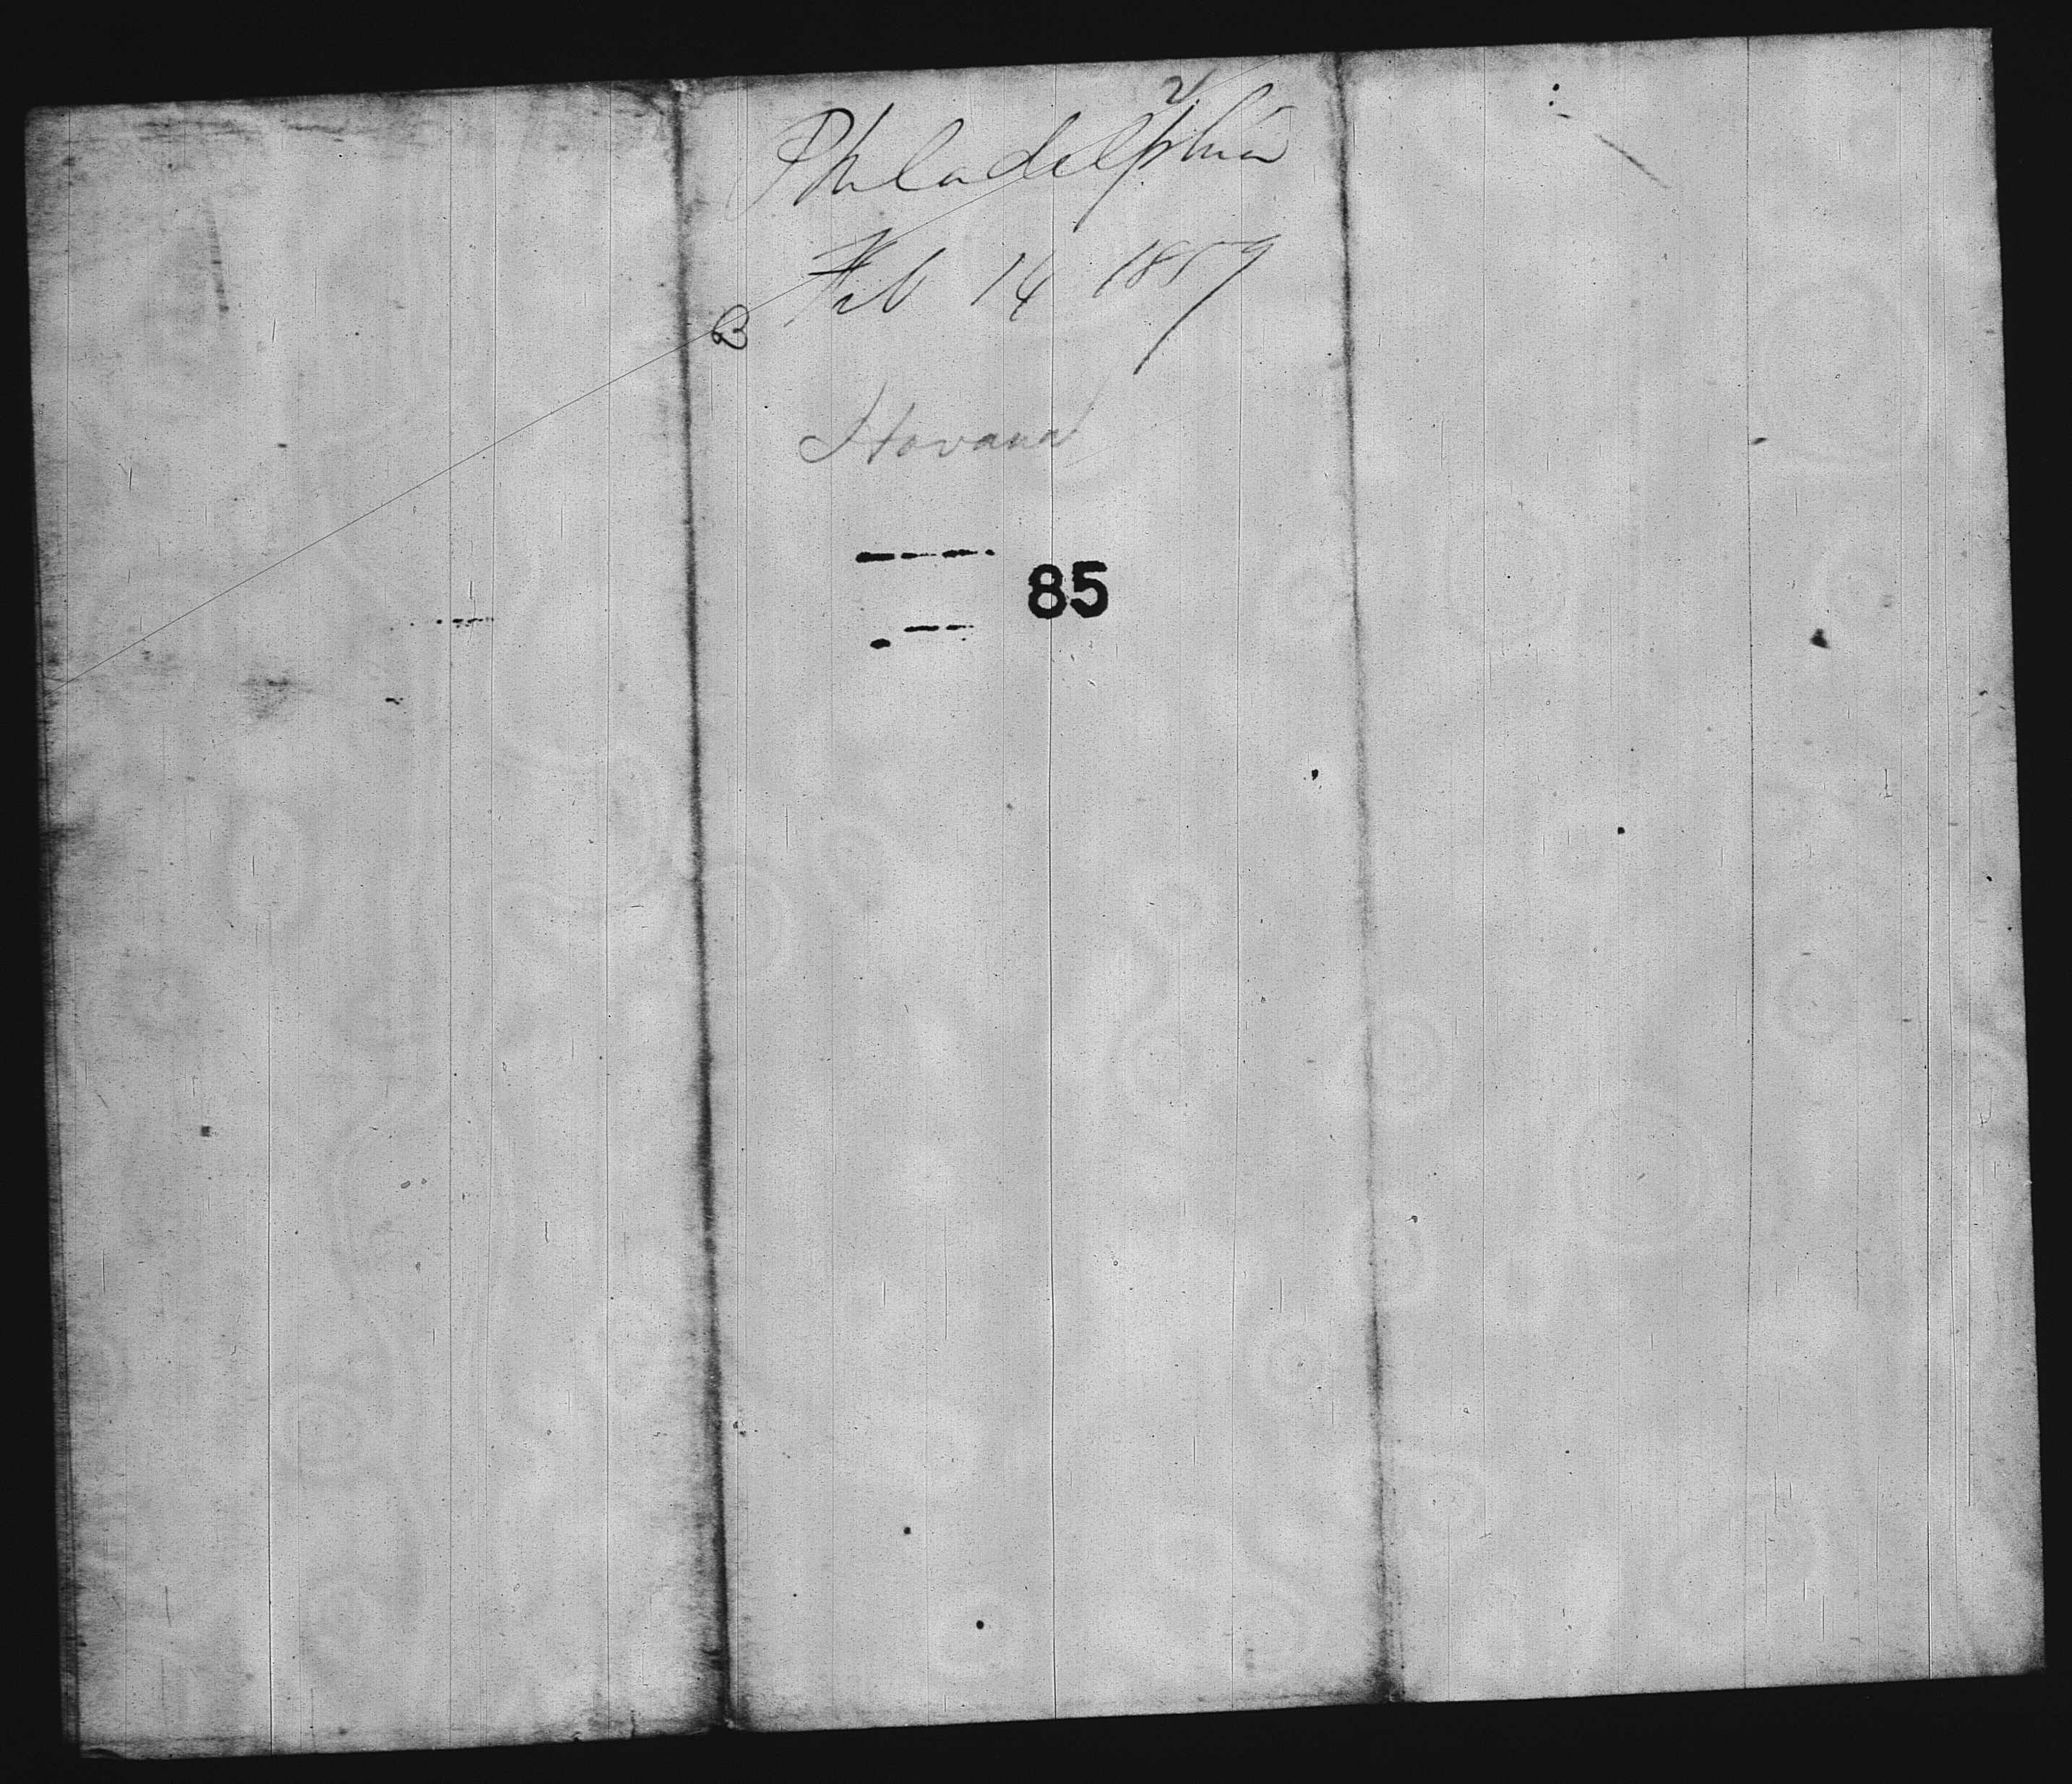 2
Philadelphia
Feb 14 1859
Havana
85